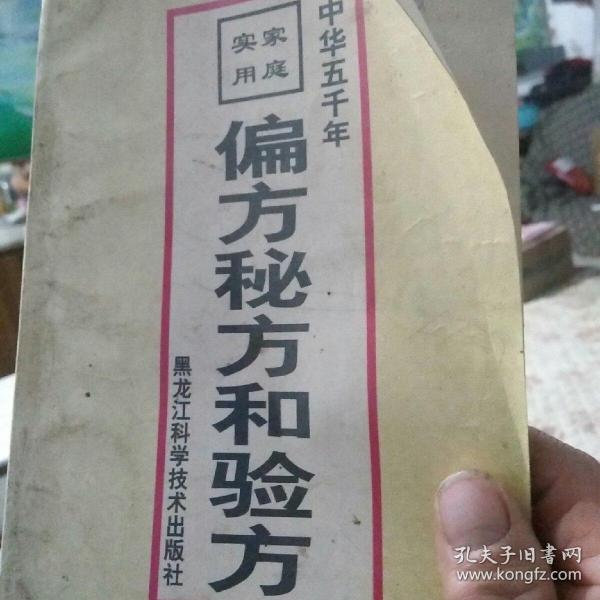 中华五千年
家庭
实用
偏方秘方和验方
黑龙江科学技术出版社
孔夫子旧书网
www.kongfz.com